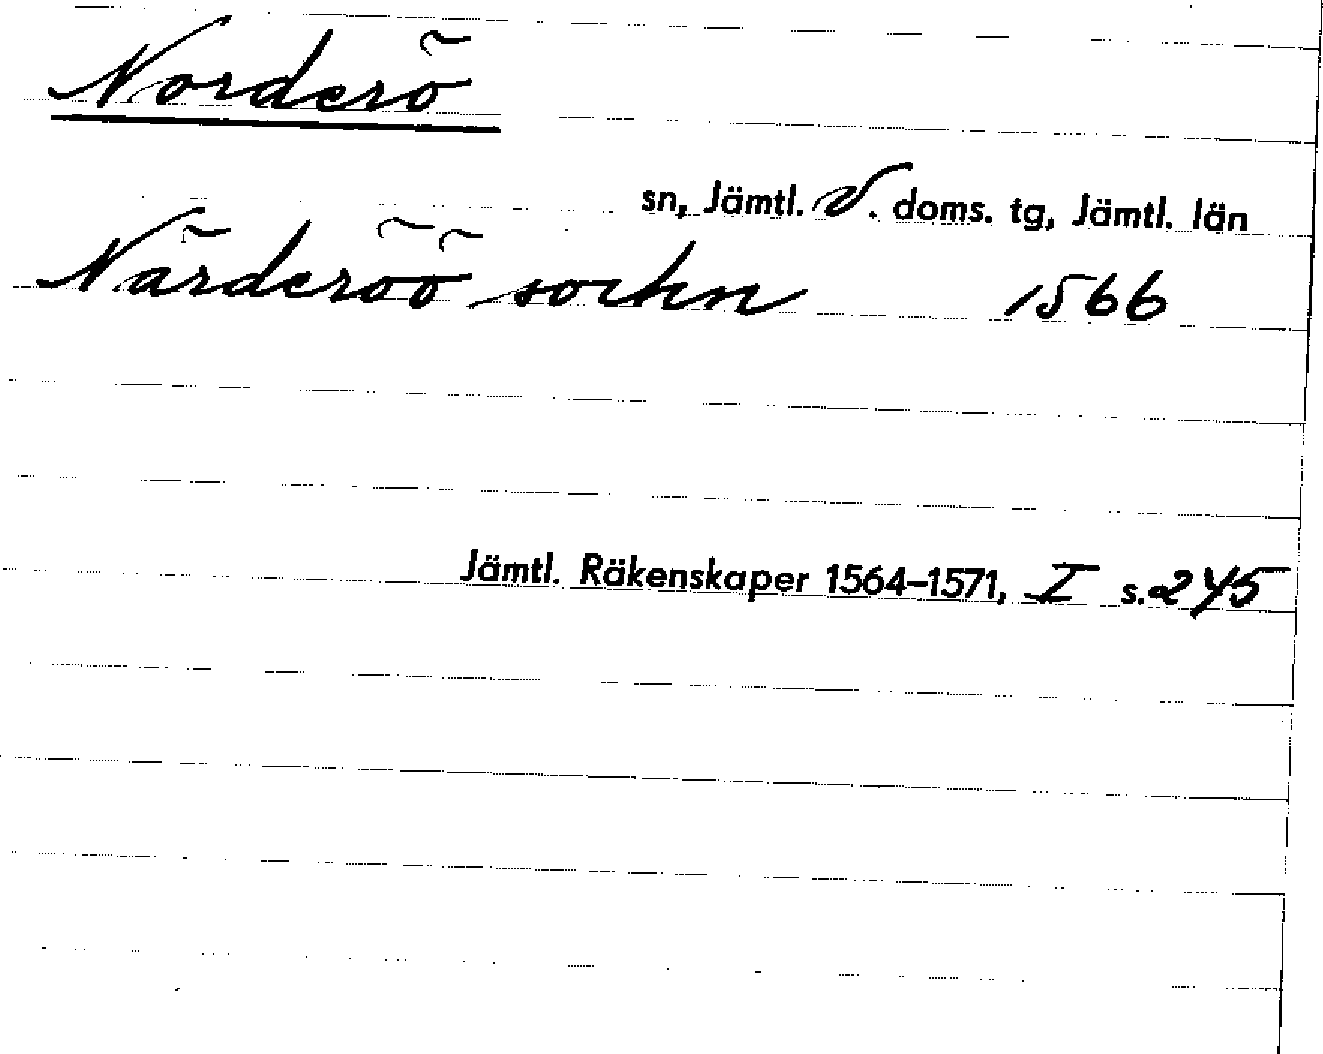 Norderö
sn, Jämtl. V. doms. tg, Jämtl. län
Närderöö sochn 1566
Jämtl. Räkenskaper 1564–1571, I s. 245